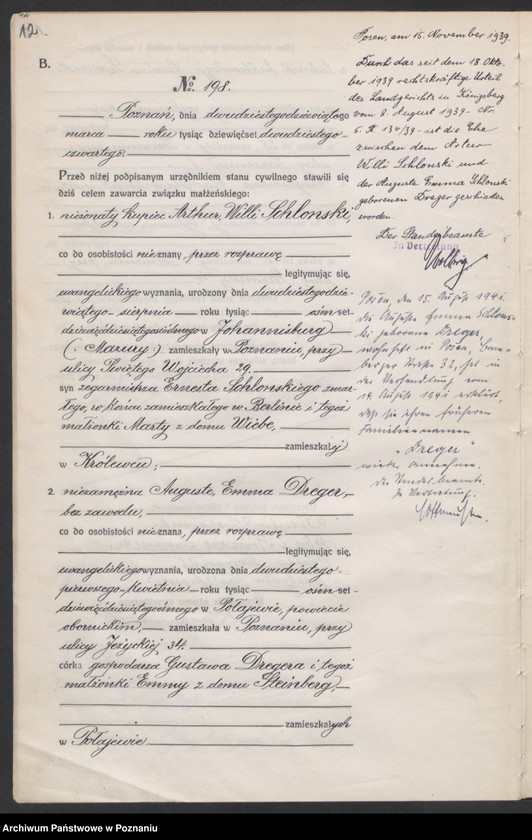 12
B.
№ 198.
Poznań, dnia dwudziestegodziewiątego
marca roku tysiąc dziewięćset dwudziestego-
czwartego.
Przed niżej podpisanym urzędnikiem stanu cywilnego stawili się
dziś celem zawarcia związku małżeńskiego:
1. nieżonaty kupiec Arthur, Willi Schlonski,
co do osobistości nieznany, przez rozprawę
legitymując się,
ewangelickiego wyznania, urodzony dnia dwudziestegodzie-
wiątego sierpnia roku tysiąc ośm-set-
dziewięćdziesiątego w Johannisburg
(Mazury) zamieszkały w Poznaniu, przy
ulicy Świętego Wojciecha 29.
syn zegarmistrza Ernesta Schlonskiego zmar-
łego, w końcu zamieszkałego w Berlinie i tegoż
małżonki Marty z domu Wiebe,
zamieszkałej
w Królewcu;
2. niezamężna Auguste, Emma Dreger,
bez zawodu,
co do osobistości nieznana, przez rozprawę
legitymując się,
ewangelickiego wyznania, urodzona dnia dwudziestego-
pierwszego kwietnia roku tysiąc ośm-set-
dziewięćdziesiątego w Połajewie, powiecie
obornickim, zamieszkała w Poznaniu, przy
ulicy Jeżyckiej 34.
córka gospodarza Gustawa Dregera i tegoż
małżonki Emmy z domu Steinberg,
zamieszkałych
w Połajewie
Posen, am 15. November 1939.
Durch das seit dem 18. Okto-
ber 1939 rechtskräftige Urteil
des Landgerichts in Königsberg
vom 8. August 1939 - No
5. R 134/39 - ist die Ehe
zwischen dem Artur
Willi Schlonski und
der Auguste Emma Schlonski
geborenen Dreger geschieden
worden.
Der Standesbeamte
In Vertretung
Posen, den 15. August 1941.
Die Auguste Emma Schlons-
ki geborene Dreger,
wohnhaft in Posen,
Straße 32, hat in
der Verhandlung vom
14. August 1941 erklärt,
daß sie ihren früheren
Familiennamen
"Dreger"
wieder annehme.
Der Standesbeamte.
In Vertretung.
Archiwum Państwowe w Poznaniu